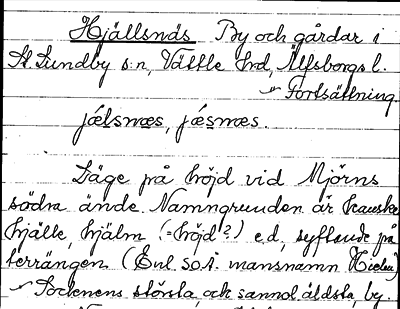 Hjällsnäs By och gårdar i
St. Lundby s:n, Vättle hd, Älfsborgs l.
Fortsättning.
jæ̂lsnæs, jǽsnæs.
Läge på höjd vid Mjörns
södra ände. Namngrunden är kanske
hjälle, hjälm (=höjd?) e.d., syftande på
terrängen. (Enl. SOÄ. mansnamn
Sockenens största, och sannol. äldsta, by.